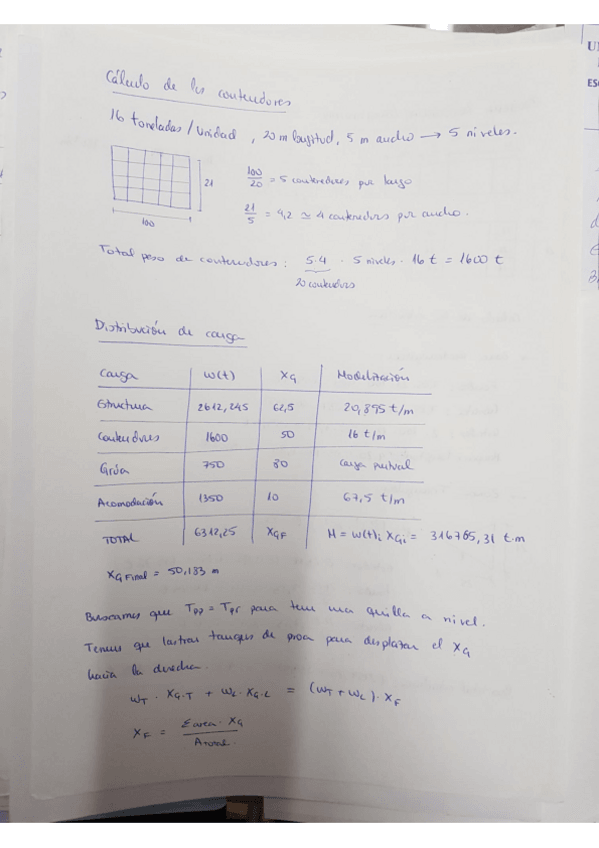 Cálculo de los contenedores
16 toneladas/unidad, 20 m longitud, 5 m ancho → 5 niveles.
21
100
100/20 = 5 contenedores por largo
21/5 = 4,2 ≃ 4 contenedores por ancho.
Total peso de contenedores: 5·4 · 5 niveles · 16 t = 1600 t
20 contenedores
Distribución de carga
Carga W(t) XG Modelización
Estructura 2612,245 62,5 20,895 t/m
Contenedores 1600 50 16 t/m
Grúa 750 80 Carga puntual
Acomodación 1350 10 67,5 t/m
TOTAL 6312,25 XGF M = W(t)i XGi = 316765,31 t·m
XG Final = 50,183 m
Buscamos que Tpp = Tpr para tener una quilla a nivel.
Tenemos que lastrar tanques de proa para desplazar el XG
hacia la derecha.
WT · XG·T + WL · XG·L = (WT + WL) · XF
XF = Σ area · XG / A total
UN
ES